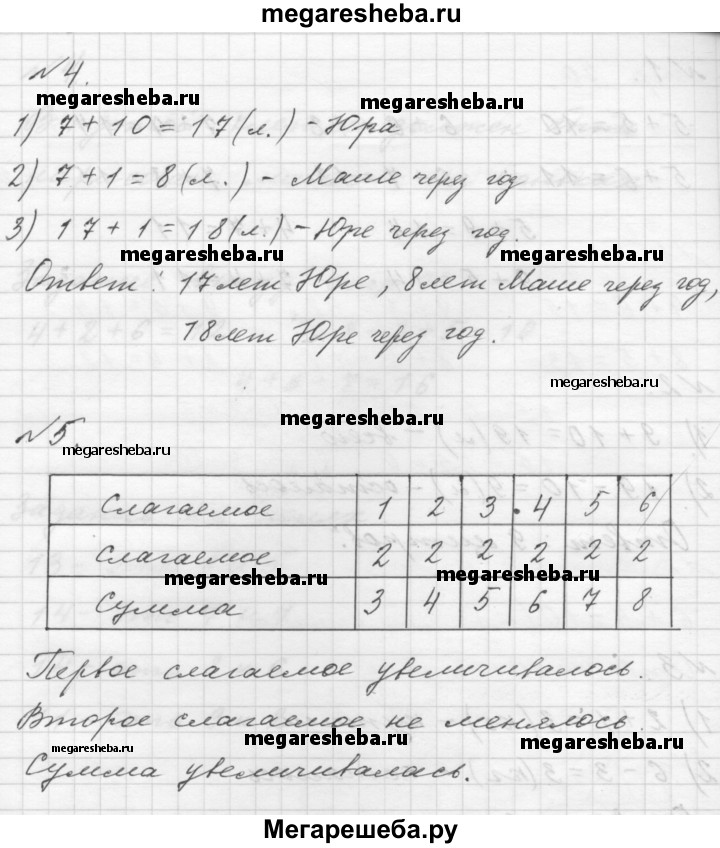 megaresheba.ru
№4.
megaresheba.ru megaresheba.ru
1) 7+10=17(л.) - Юра
2) 7+1=8(л.) - Маше через год
3) 17+1=18(л.) - Юре через год.
megaresheba.ru megaresheba.ru
Ответ: 17 лет Юре, 8 лет Маше через год,
18 лет Юре через год.
megaresheba.ru
megaresheba.ru
№5.
megaresheba.ru
Слагаемое 1 2 3 4 5 6
Слагаемое 2 2 2 2 2 2
megaresheba.ru megaresheba.ru
Сумма 3 4 5 6 7 8
Первое слагаемое увеличивалось.
Второе слагаемое не менялось.
megaresheba.ru megaresheba.ru megaresheba.ru
Сумма увеличивалась.
Мегарешеба.ру